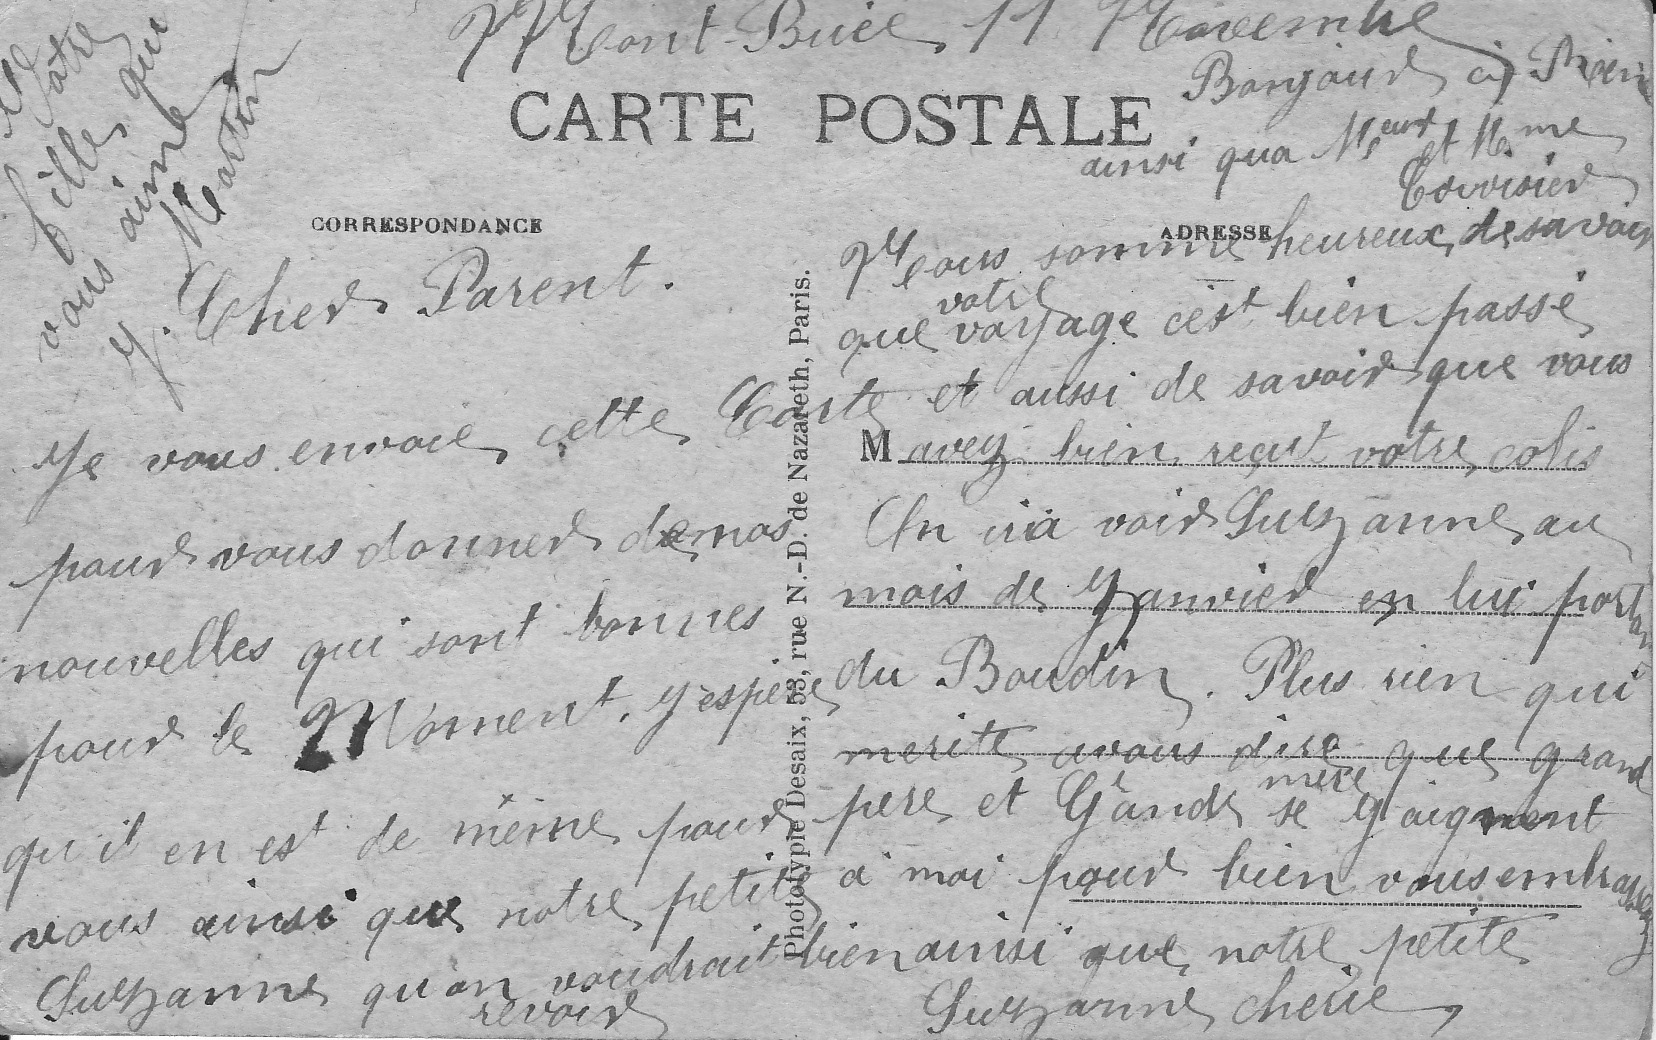 Mont-Buie, 11 Novembre
CARTE POSTALE
CORRESPONDANCE
Cher Parent.
Je vous envoie cette Carte
pour vous donner de nos
nouvelles qui sont bonnes
pour le Moment. J'espère
qu'il en est de même pour
vous ainsi que notre petite
Suzanne qu'on voudrait bien
revoir
Phototypie Desaix, 53, rue N.-D. de Nazareth, Paris.
ADRESSE
M
Nous somme heureux de savoir
que votre voyage c'est bien passé
et aussi de savoir que vous
avez bien reçut votre colis
On ira voir Suzanne au
mois de Janvier en lui portant
du Boudin. Plus rien qui
merite avous dire que grand
pere et Grand mere se joignent
a moi pour bien vous embrasser
ainsi que notre petite
Suzanne cherie
Votre
fille qui
vous aime
J. Martin
Bonjour a
ainsi qua Meur et Mme